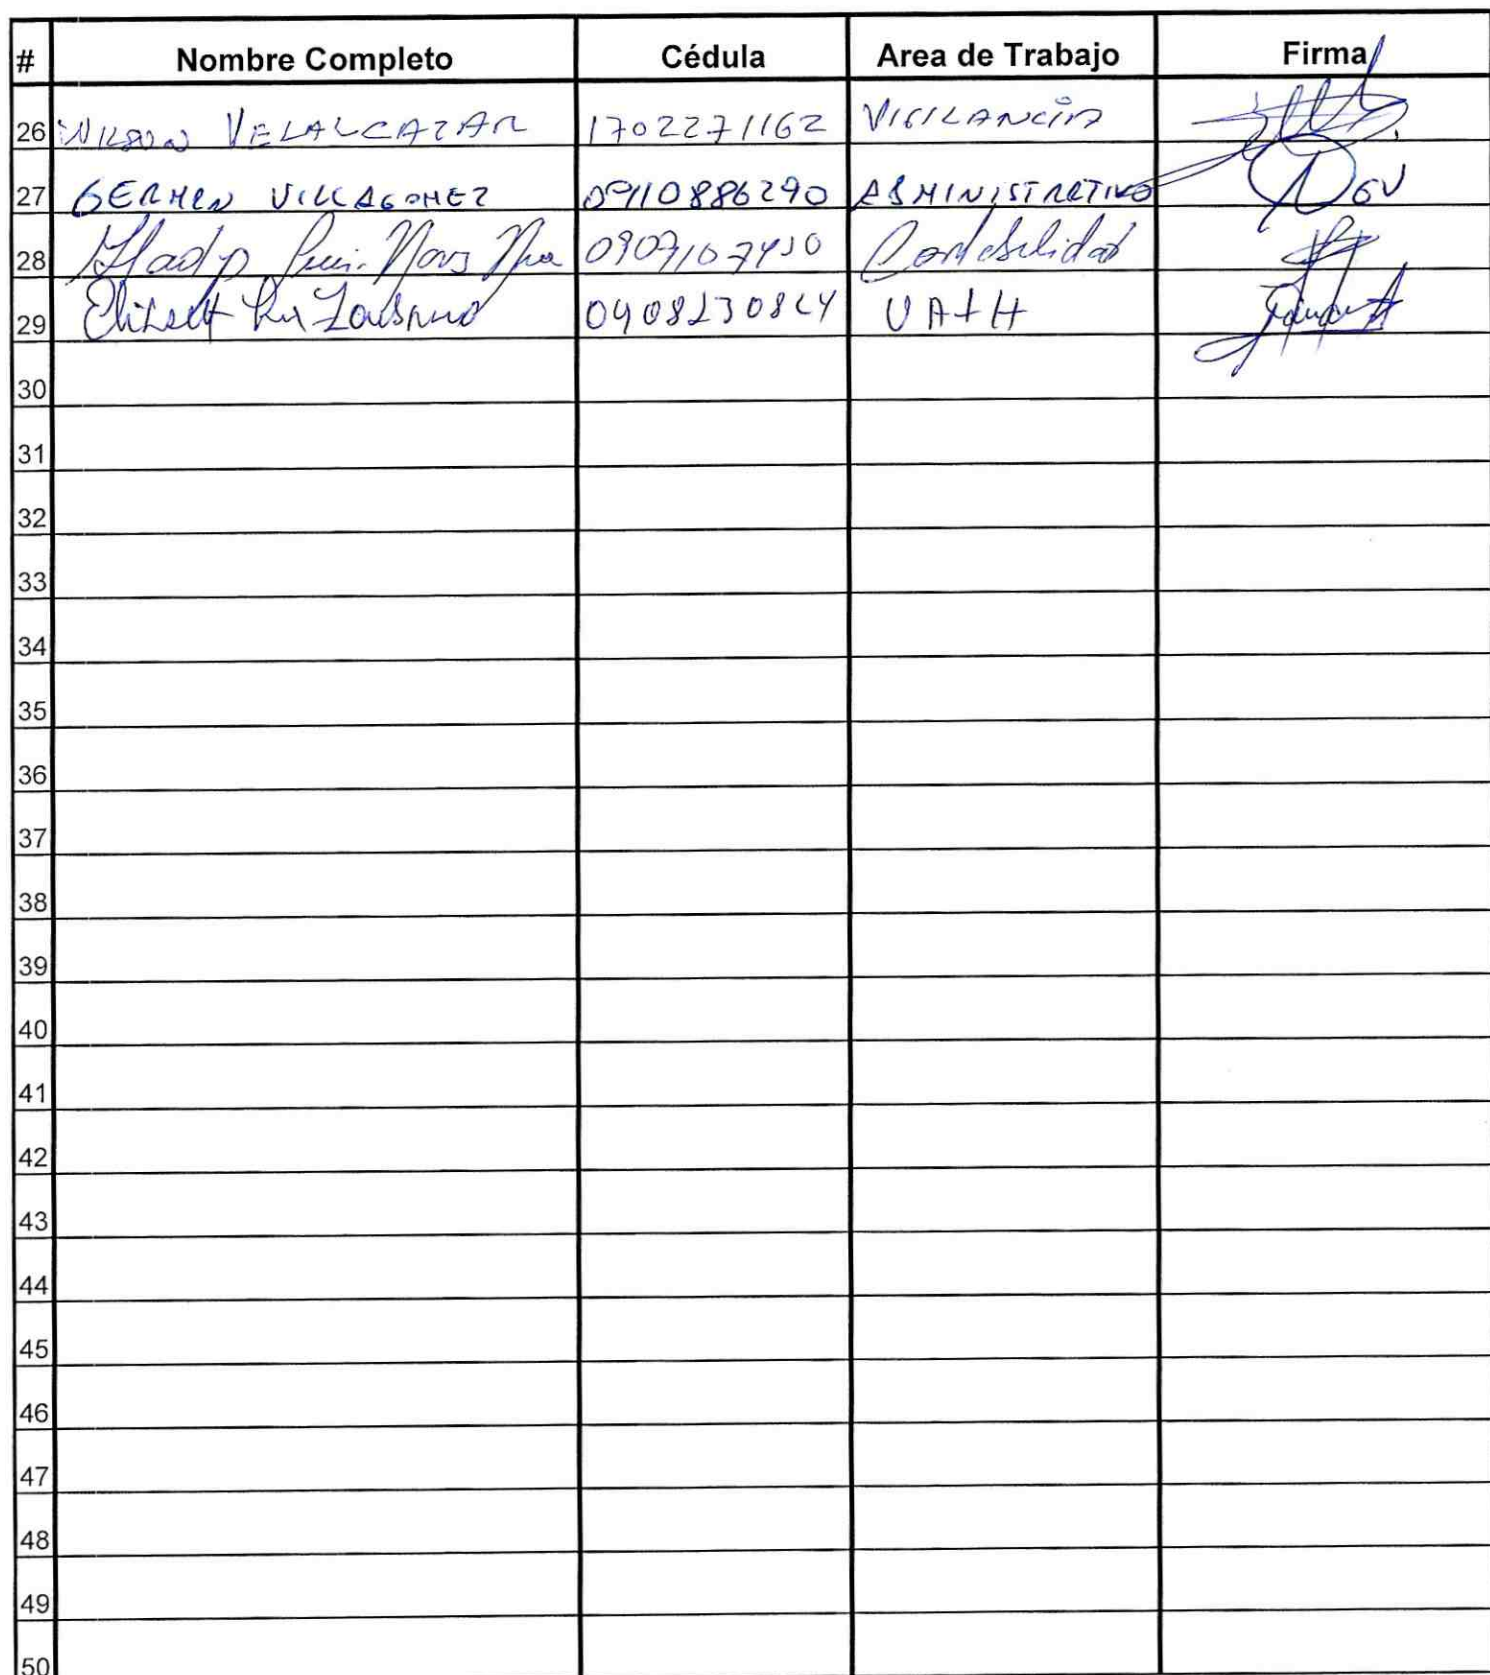 # Nombre Completo Cédula Area de Trabajo Firma
26 WILSON VELALCAZAR 1702271162 VIGILANCIA
27 GERMAN VILLAGOMEZ 09110886290 ADMINISTRATIVO GV
28 Contabilidad
29 UATH
30
31
32
33
34
35
36
37
38
39
40
41
42
43
44
45
46
47
48
49
50